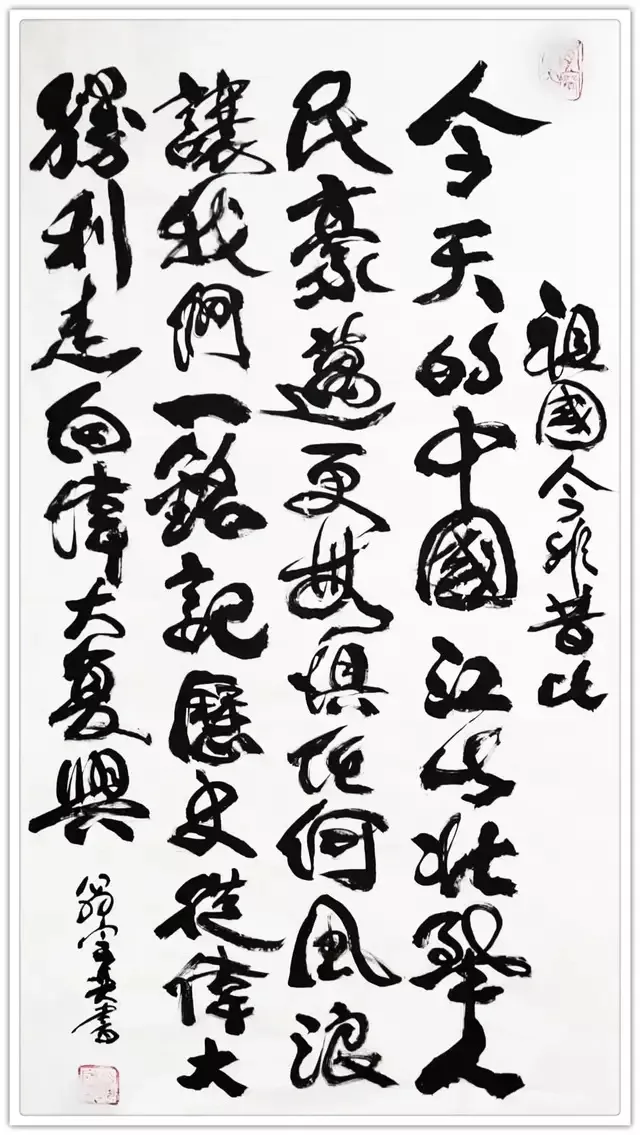 祖國今非昔比
今天的中國江山壯麗人
民豪邁更無惧任何風浪
讓我們一銘記歷史從偉大
勝利走向偉大复興
翁書